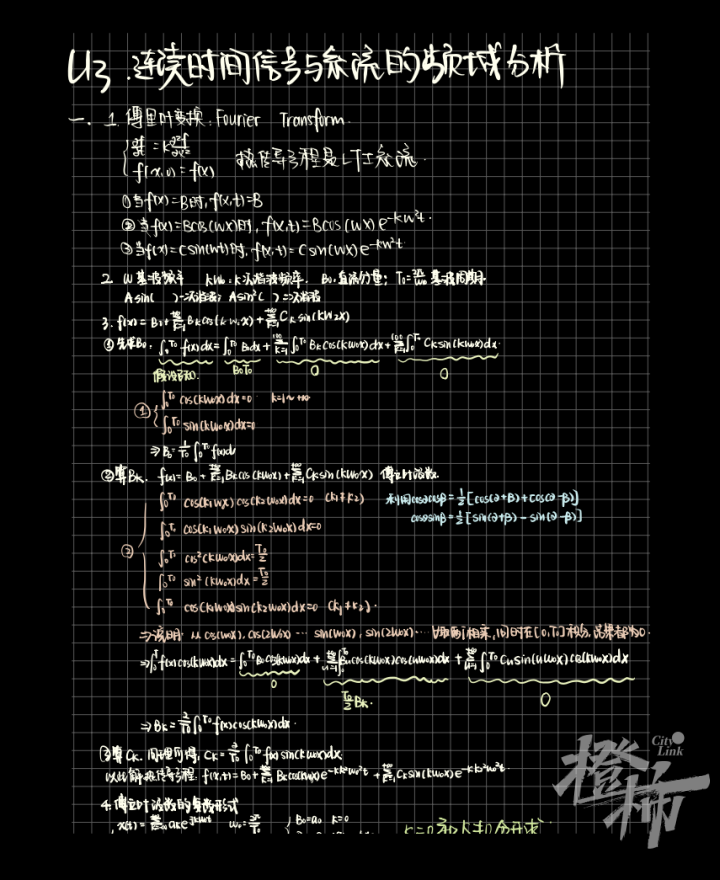 U3. 连续时间信号与系统的频域分析
一. 1. 傅里叶变换. Fourier Transform.
{ ∂f/∂t = k ∂²f/∂x²
f(x,0) = f(x) 热传导方程是LTI系统.
①当f(x)=B时, f(x,t)=B
②当f(x)=Bcos(wx)时, f(x,t)=Bcos(wx)e^-kw²t.
③当f(x)=Csin(wt)时, f(x,t)=Csin(wx)e^-kw²t
2. W基波频率 kW₀: k次谐波频率. B₀:直流分量; T₀=2π/w₀ 基波周期
Asin( )一次谐波; Asin²( )二次谐波
3. f(x)=B₀+Σ Bₖcos(kw₀x)+Σ Cₖsin(kw₀x)
①先求B₀. ∫₀^T₀ f(x)dx=∫₀^T₀ B₀dx+Σ∫₀^T₀ Bₖcos(kw₀x)dx+Σ∫₀^T₀ Cₖsin(kw₀x)dx.
B₀T₀ 0 0
① { ∫₀^T₀ cos(kw₀x)dx=0 k=1~+∞
∫₀^T₀ sin(kw₀x)dx=0
⇒B₀=1/T₀ ∫₀^T₀ f(x)dx
②算Bₖ. f(x)=B₀+Σ Bₖcos(kw₀x)+Σ Cₖsin(kw₀x) 傅里叶级数.
∫₀^T₀ cos(k₁w₀x)cos(k₂w₀x)dx=0 (k₁≠k₂) 利用cosαcosβ=½[cos(α+β)+cos(α-β)]
∫₀^T₀ cos(k₁w₀x)sin(k₂w₀x)dx=0 cosαsinβ=½[sin(α+β)-sin(α-β)]
② ∫₀^T₀ cos²(kw₀x)dx=T₀/2
∫₀^T₀ sin²(kw₀x)dx=T₀/2
∫₀^T₀ cos(k₁w₀x)sin(k₂w₀x)dx=0 (k₁≠k₂).
⇒说明: cos(w₀x), cos(2w₀x) … sin(w₀x), sin(2w₀x) … 两两相乘, 同时在[0,T₀]积分, 结果都为0.
⇒∫₀^T f(x)cos(kw₀x)dx=∫₀^T₀ B₀cos(kw₀x)dx+Σ∫₀^T₀ Bᵤcos(kw₀x)cos(uw₀x)dx+Σ∫₀^T₀ Cᵤsin(uw₀x)cos(kw₀x)dx
0 T₀/2 Bₖ. 0
⇒Bₖ=2/T₀ ∫₀^T₀ f(x)cos(kw₀x)dx.
③算Cₖ. 同理可得, Cₖ=2/T₀ ∫₀^T₀ f(x)sin(kw₀x)dx.
以此解热传导方程. f(x,t)=B₀+Σ Bₖcos(kw₀x)e^-kk²w₀²t+Σ Cₖsin(kw₀x)e^-kk²w₀²t.
4.傅里叶级数的复数形式
x(t)=Σ aₖe^jkw₀t w₀=2π/T { B₀=a₀ k=0 k=0和k≠0分开求.
City Link
橙柿